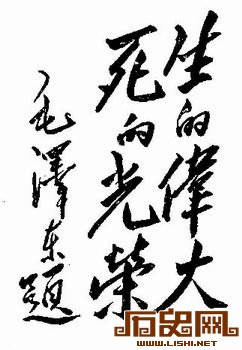 生的偉大
死的光榮
毛澤东题
历史网
WWW.LISHI.NET